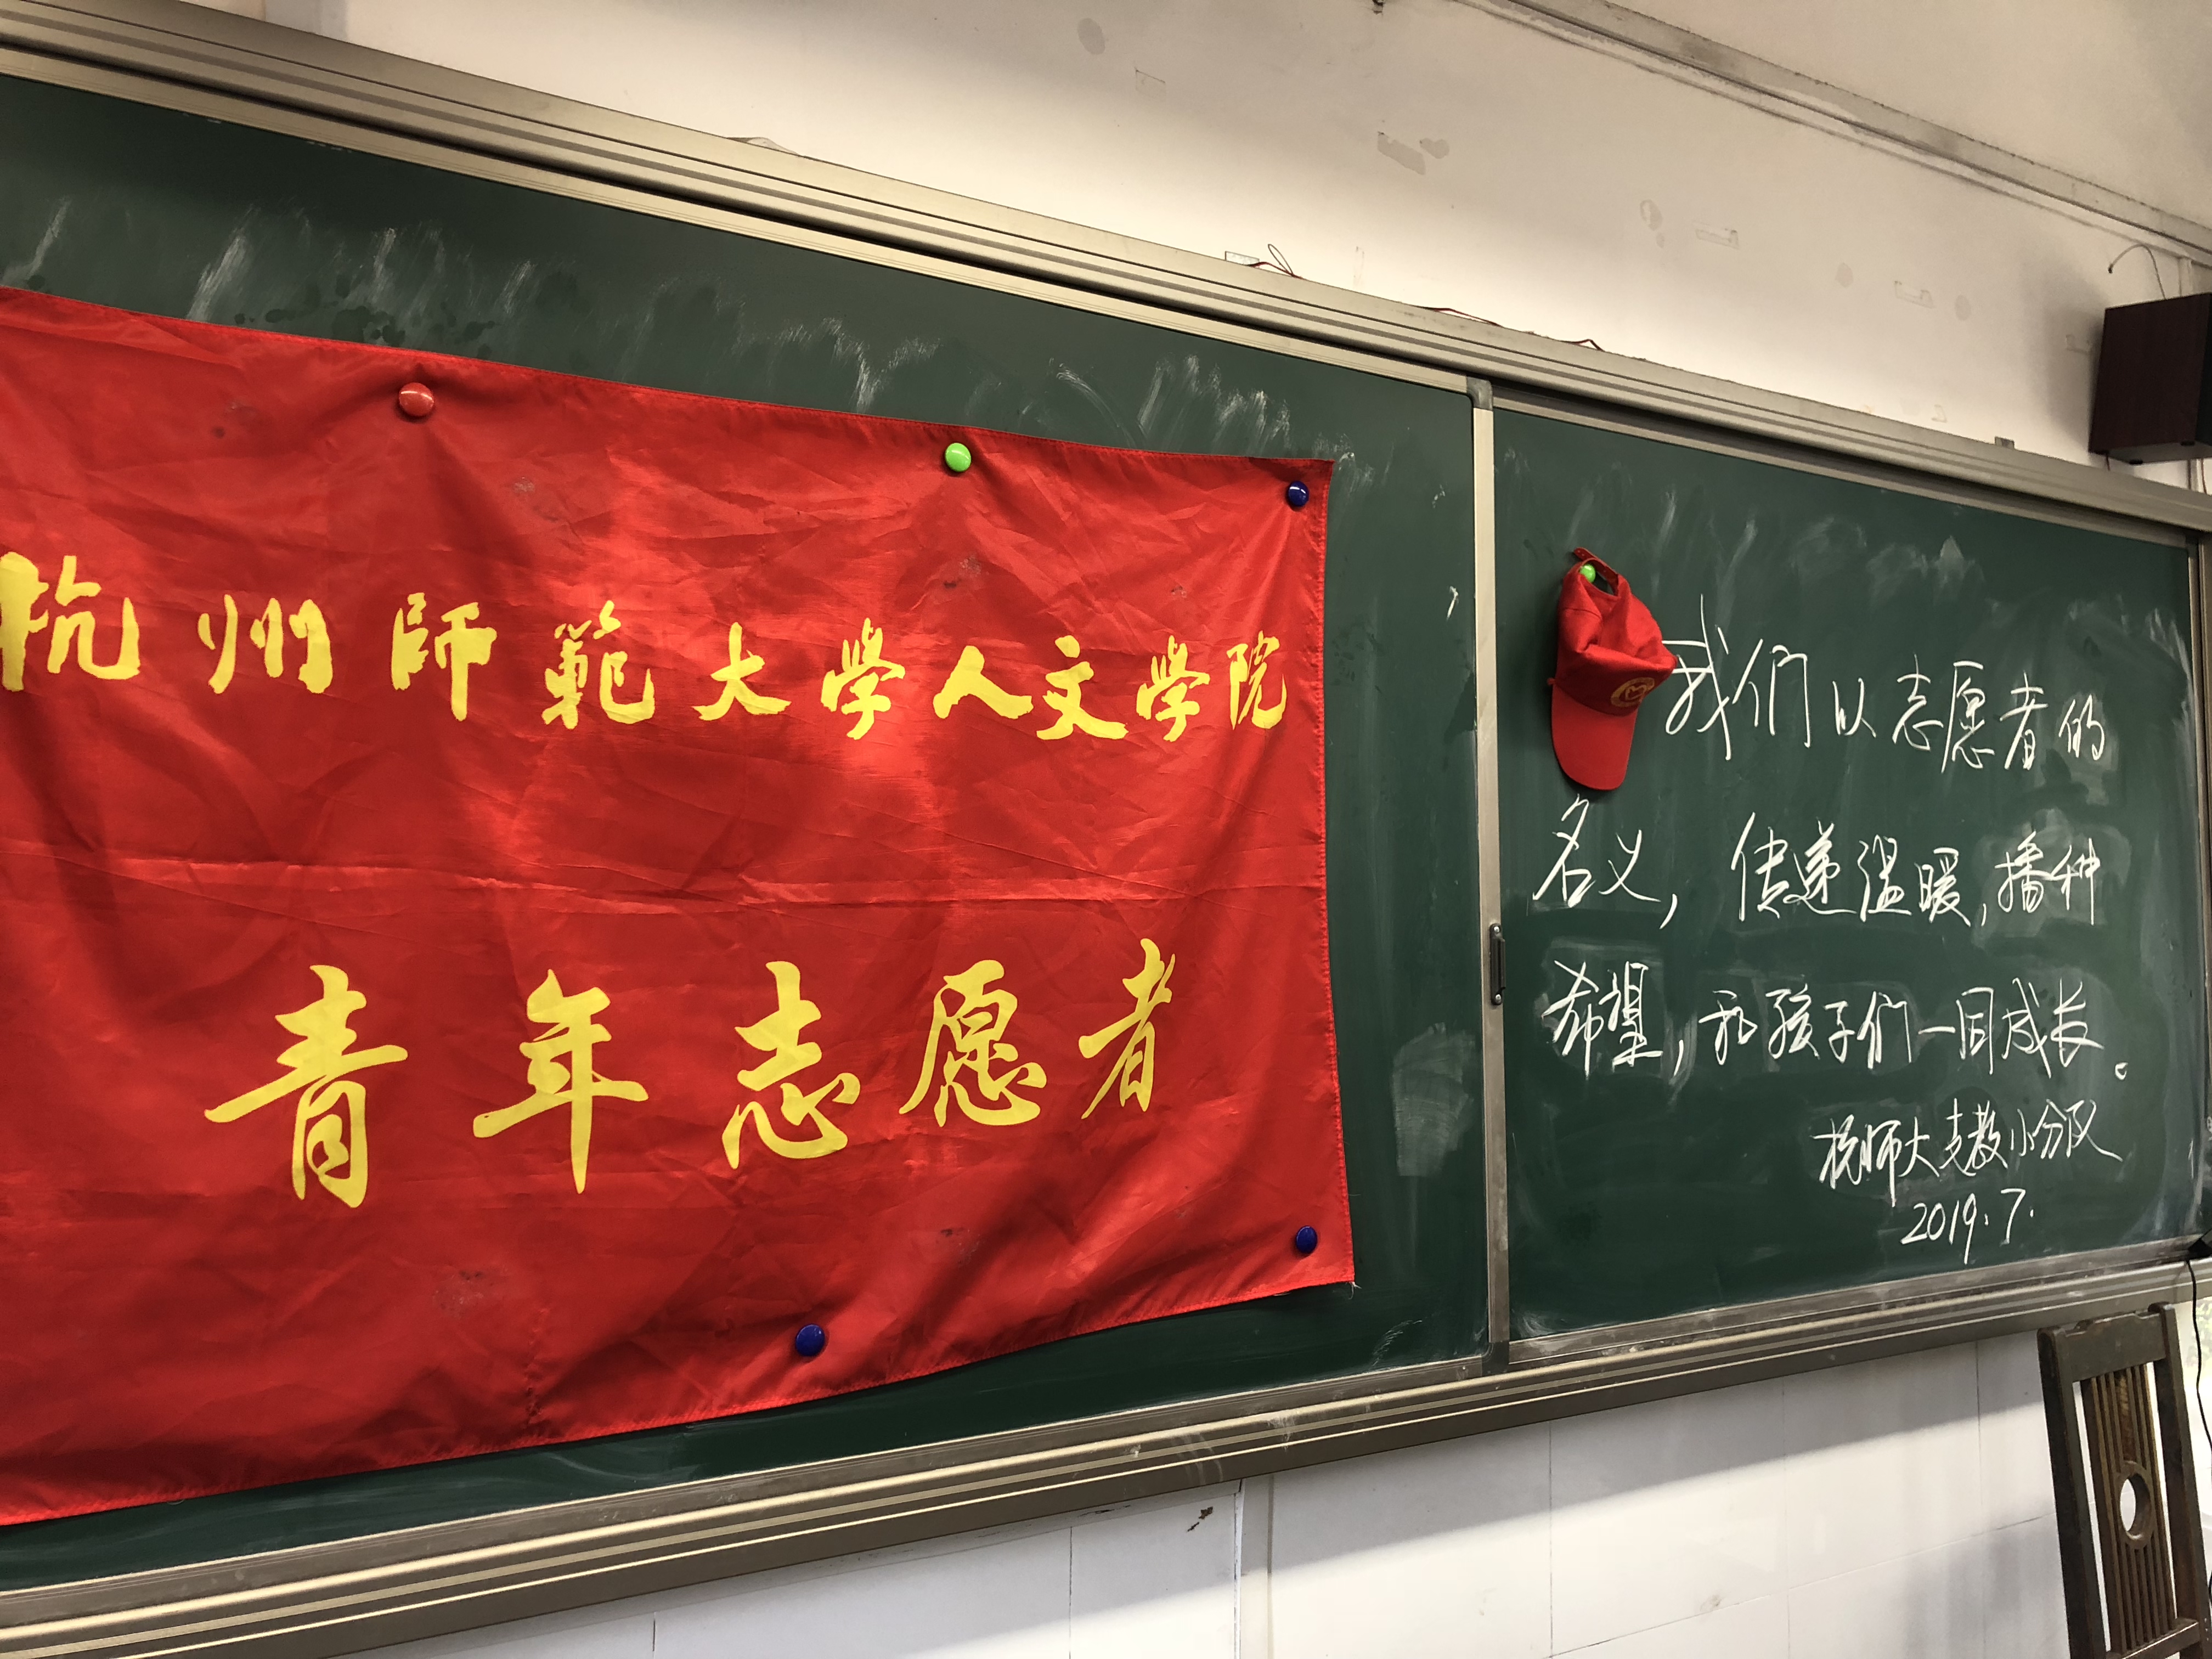 杭州師範大學人文學院
青年志愿者
我们以志愿者的
名义，传递温暖，播种
希望，和孩子们一同成长。
杭师大支教小分队
2019.7.